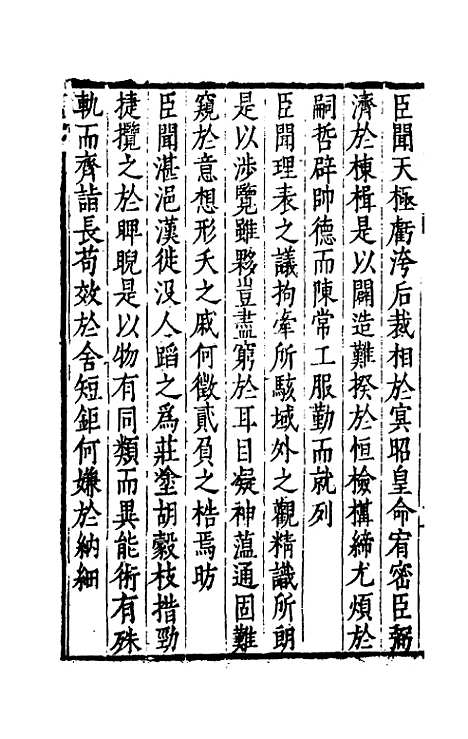 臣聞天極虧洿后裁相於寅昭皇命宥密臣弼
濟於棟楫是以闢造難揆於恒檢構締尤煩於
嗣哲辟帥德而陳常工服勤而就列
臣聞理表之議拘牽所駭域外之觀精識所朗
是以涉覽雖夥豈盡窮於耳目凝神蘊通固難
窺於意想形夭之戚何徵貳負之梏焉昉
臣聞湛浥漢徙沒人蹈之為莊塗胡縠枝揩勁
捷攬之於睥睨是以物有同類而異能術有殊
軌而齊詣長苟效於舍短鉅何嫌於納細